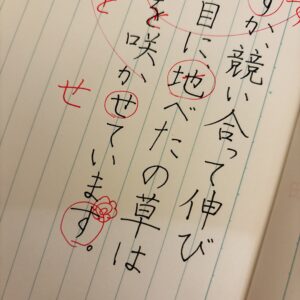 すが、競い合って伸び
目に、地べたの草は
を咲かせています。
せ